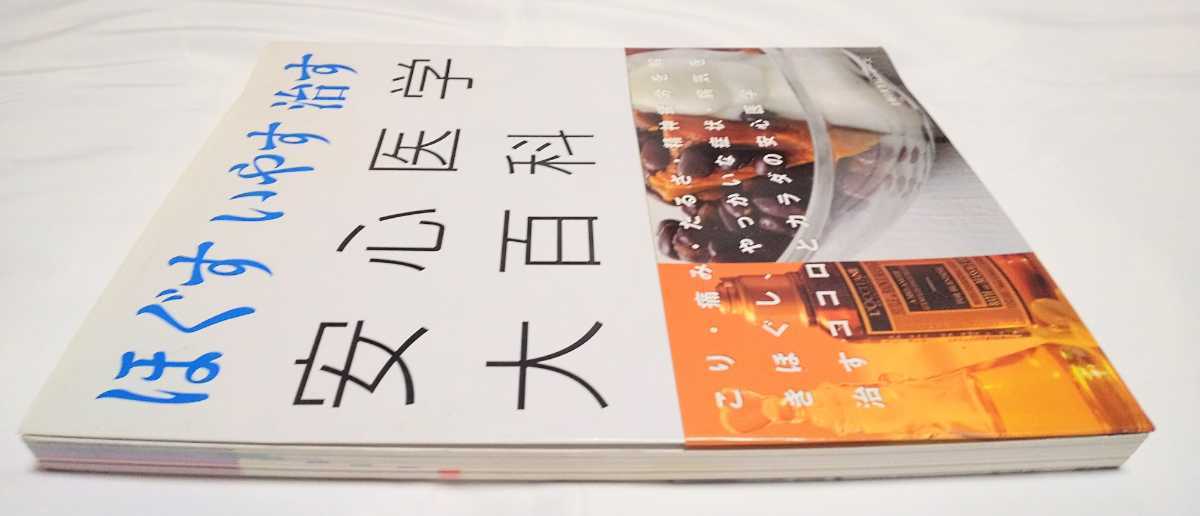 ほぐす いやす 治す
安心医学
大百科
こり・痛み・だるさ、精神
きほぐし、やっかいな症状 病気を
治す ココロとカラダの安心医学
L'OCCITANE